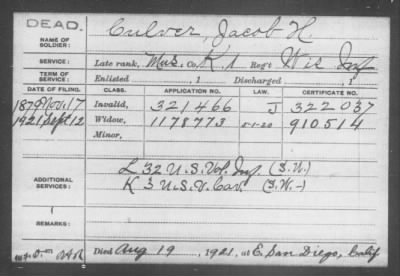 DEAD.
NAME OF SOLDIER: Culver, Jacob H.
SERVICE: Late rank, Mus. Co. K, 1 Reg't Wis Inf
TERM OF SERVICE: Enlisted , 1 Discharged , 1
DATE OF FILING. CLASS. APPLICATION NO. LAW. CERTIFICATE NO.
1879 Nov. 17 Invalid, 321466 J 322037
1921 Sept 12 Widow, 1178773 5-1-20 910514
Minor,
ADDITIONAL SERVICES: L 32 U.S. Vol. Inf. (S.W.)
K 3 U.S.V. Cav. (S.W.-)
REMARKS:
Died Aug 19, 1921, at E. San Diego, Calif